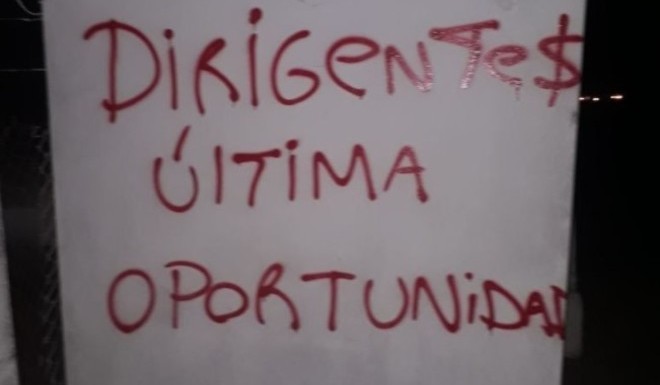 DIRIGENTE$
ÚLTIMA
OPORTUNIDAD